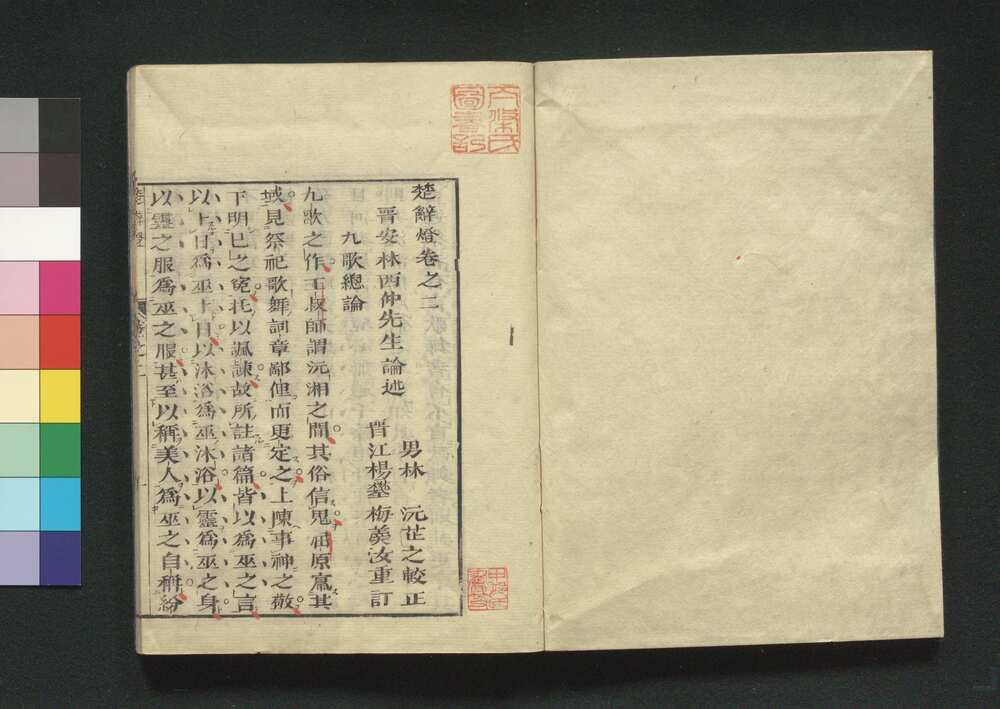 楚辭燈卷之二
晋安林西仲先生論述
男林　沅芷之較正
晋江楊鑾梅羹汝重訂
九歌總論
九歌之作王叔師謂沅湘之間其俗信鬼祀原竄其
域見祭祀歌舞詞章鄙俚而更定之上陳事神之敬
下明已之寃托以諷諫故所註諸篇皆以爲巫之言
以上日爲巫上日以沐浴爲巫沐浴以靈爲巫之身
以靈之服爲巫之服甚至以稱美人爲巫之自稱紛
圖書記